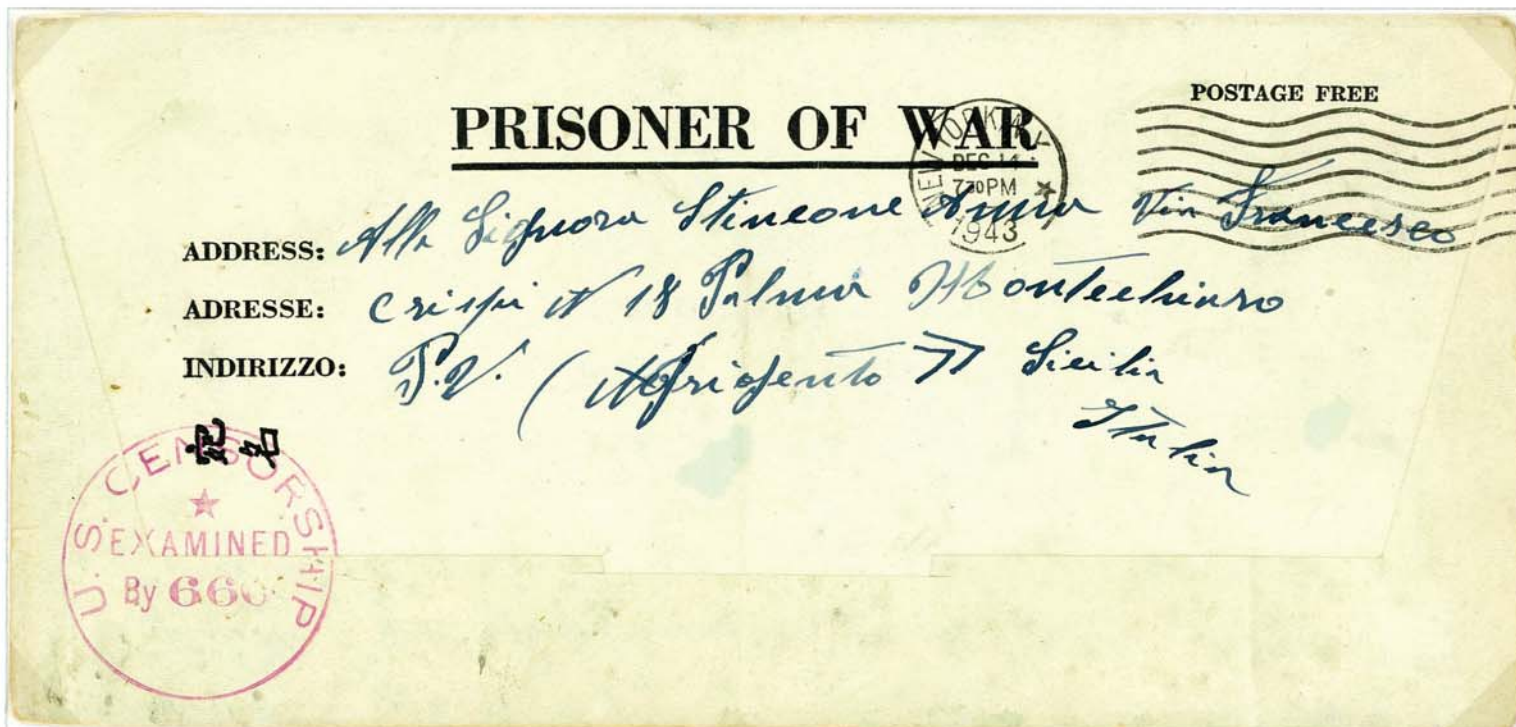 POSTAGE FREE
PRISONER OF WAR
NEW YORK, N.Y.
DEC 14
7 30 PM
1943
ADDRESS: Alla Signora Stincone Anna Via Francesco
ADRESSE: Crispi N 18 Palma Montechiaro
INDIRIZZO: P.V. (Agrigento) Sicilia
Italia
U.S. CENSORSHIP
EXAMINED
By 66